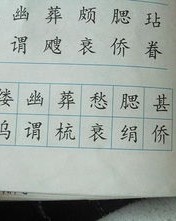 幽 葬 颇 腮 玷
谓 飕 衰 侨 眷
幽 葬 愁 腮 甚
谓 梳 衰 绢 侨